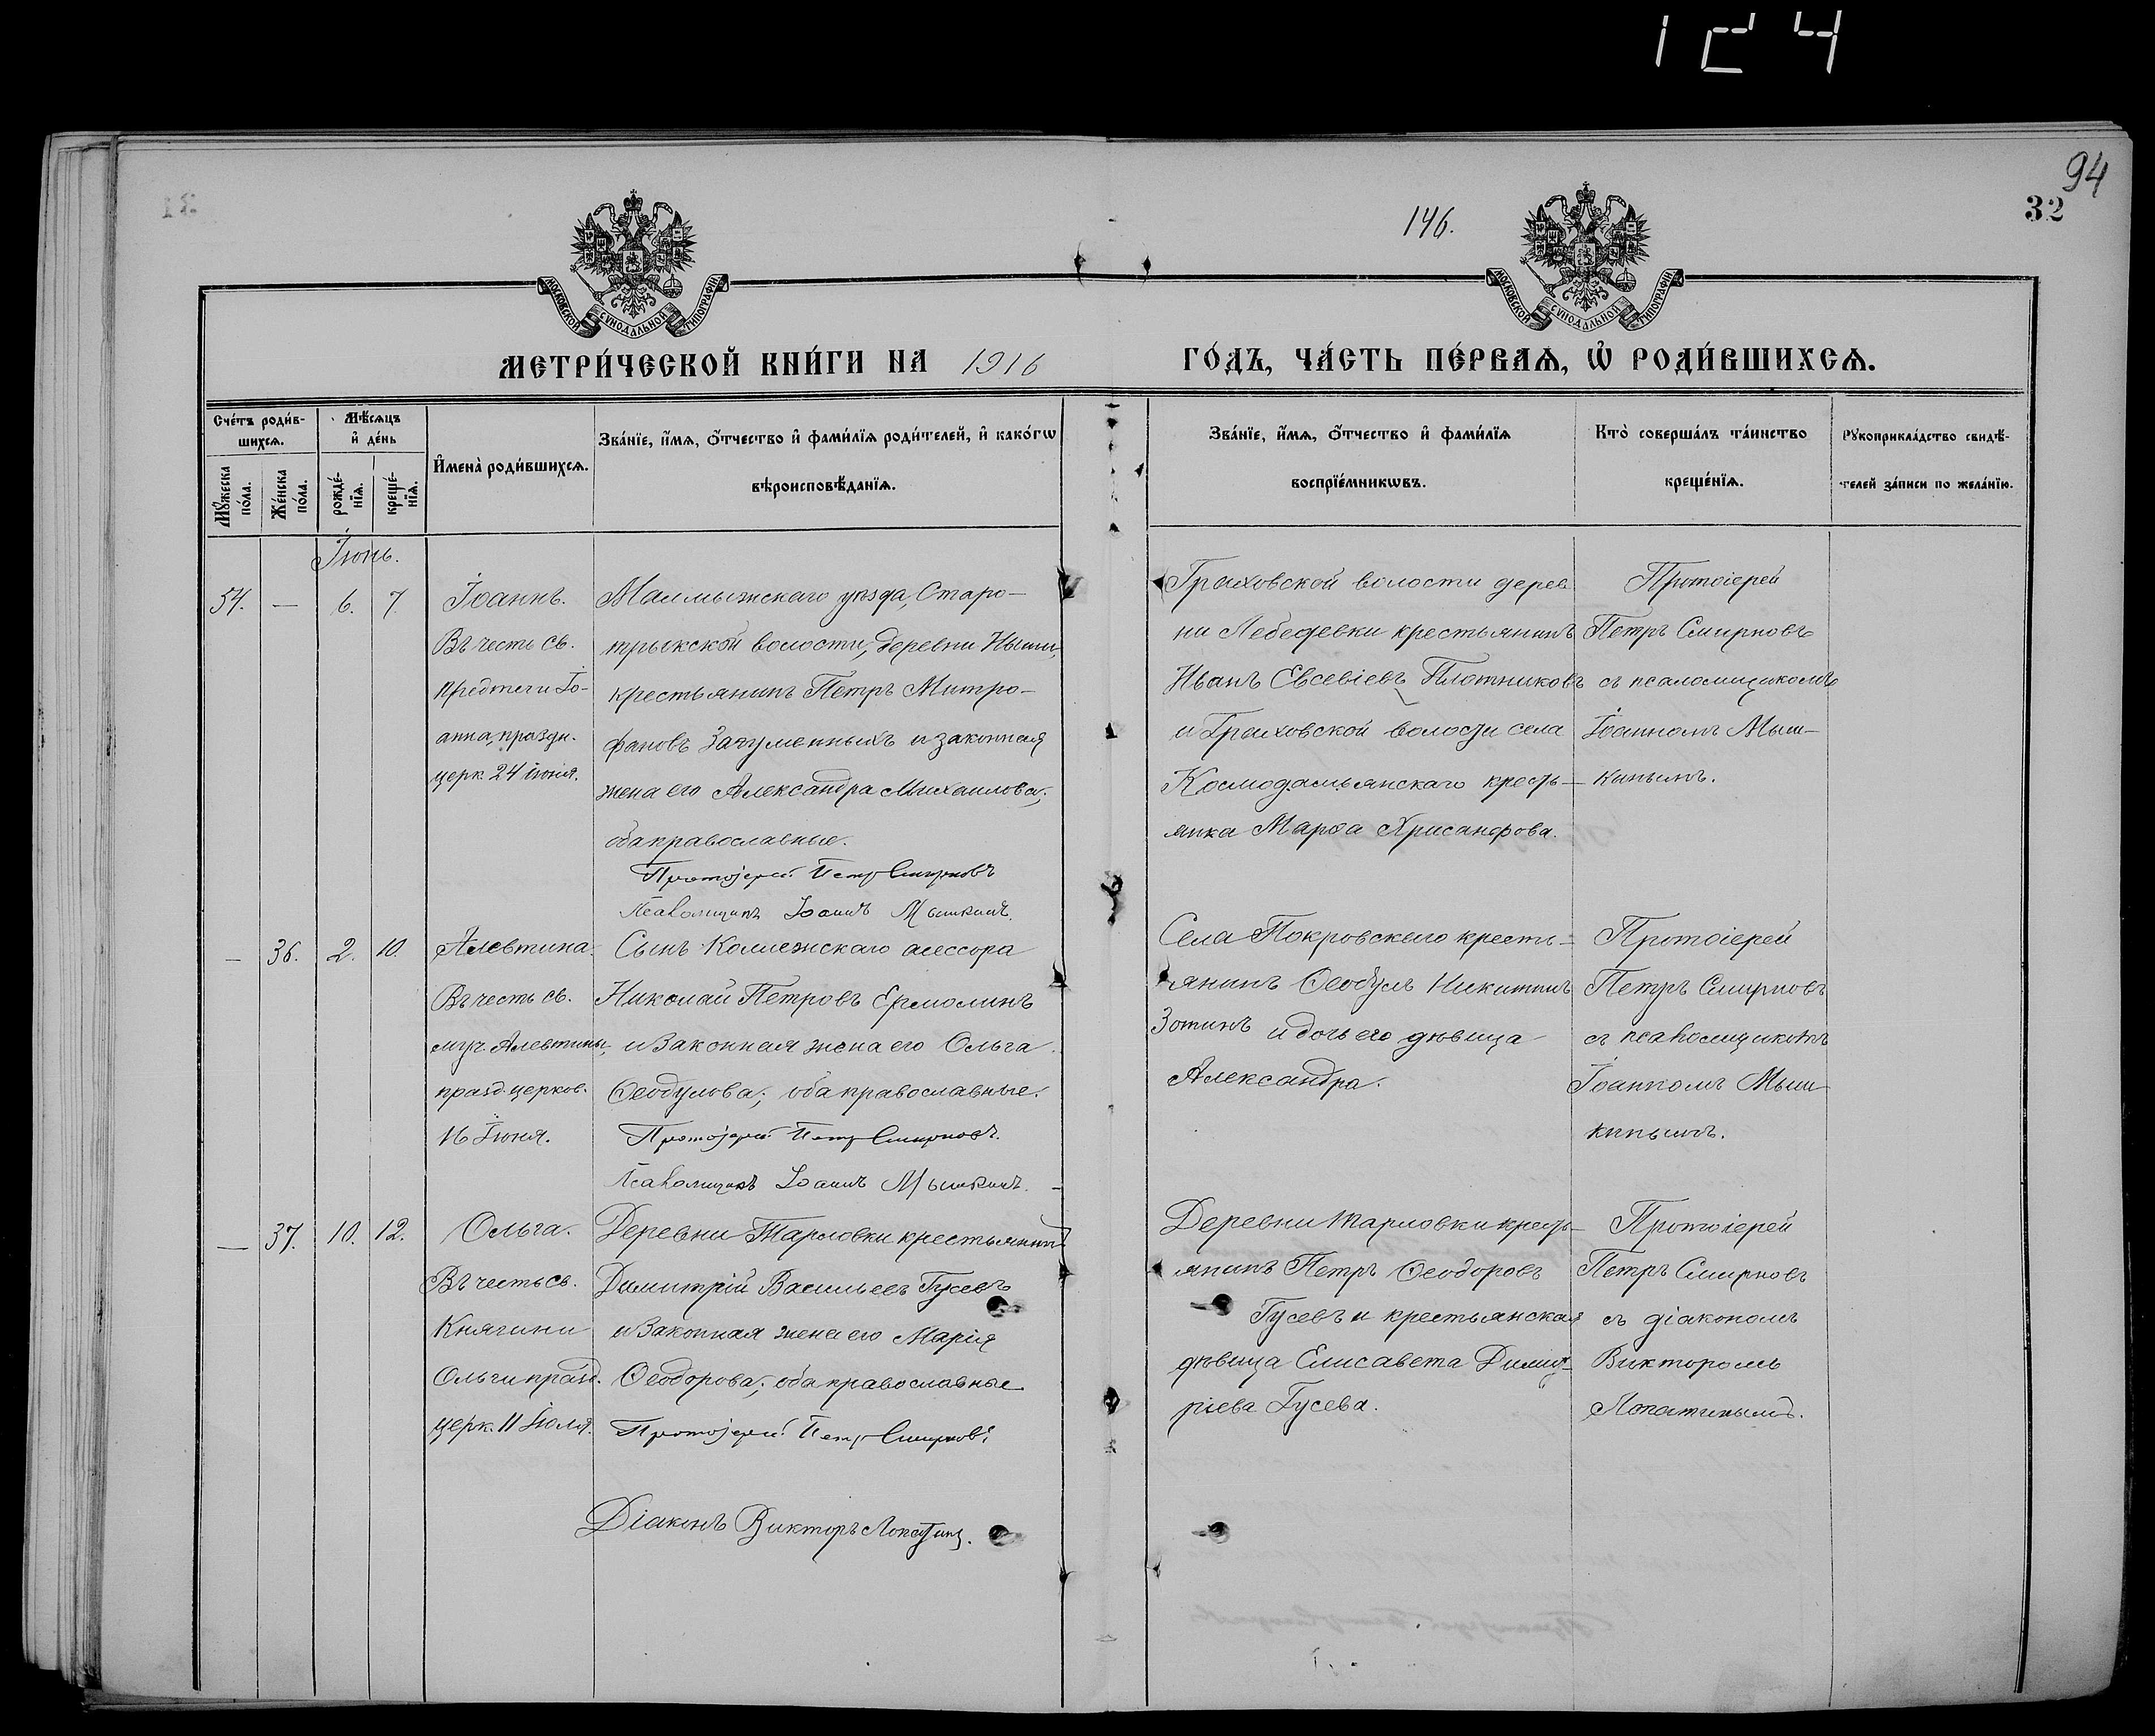 124
94
32
146.
МОСКОВСКОЙ СУНОДАЛЬНОЙ ТИПОГРАФІИ
МОСКОВСКОЙ СУНОДАЛЬНОЙ ТИПОГРАФІИ
МЕТРИ́ЧЕСКОЙ КНИ́ГИ НА 1916 ГО́ДЪ, ЧА́СТЬ ПЕ́РВАѦ, Ѡ҆ РОДИ́ВШИХСѦ.
Сче́тъ роди́в-
шихсѧ.
Мꙋ́жеска по́ла.
Же́нска по́ла.
Мѣ́сѧцъ
и҆ де́нь
рожде́-
нїѧ.
креще́-
нїѧ.
И҆мена̀ роди́вшихсѧ.
Зва́нїе, и҆́мѧ, ѻ҆́тчество и҆ фами́лїѧ роди́телей, и҆ како́гѡ
вѣроисповѣ́данїѧ.
Зва́нїе, и҆́мѧ, ѻ҆́тчество и҆ фами́лїѧ
воспрїе́мникѡвъ.
Кто̀ соверша́лъ та́инство
креще́нїѧ.
Рꙋкоприкла́дство свидѣ́-
телей за́писи по жела́нїю.
Іюнь.
54. — 6. 7.
Іоаннъ.
Въ честь св.
Предтечи Іо-
анна, праздн.
церк. 24 іюня.
Малмыжскаго уѣзда, Старо-
трыкской волости, деревни Ныши,
крестьянинъ Петръ Митро-
фановъ Загуменныхъ и законная
жена его Александра Михаилова;
оба православные.
Протоіерей Петръ Смирновъ
Псаломщикъ Іоаннъ Мышкинъ.
Граховской волости дерев
ни Лебедевки крестьянинъ
Иванъ Евсевіевъ Плотниковъ
и Граховской волости села
Космодамьянскаго кресть-
янка Марѳа Хрисанфова.
Протоіерей
Петръ Смирновъ
съ псаломщикомъ
Іоанномъ Мыш-
кинымъ.
— 36. 2. 10.
Алевтина.
Въ честь св.
муч. Алевтины,
празд. церков.
16 Іюня.
Сынъ Коллежскаго асессора
Николай Петровъ Ермолинъ
и законная жена его Ольга
Ѳеодулова; оба православные.
Протоіерей Петръ Смирновъ.
Псаломщикъ Іоаннъ Мышкинъ.
Села Покровскаго кресть-
янинъ Ѳеодулъ Никитинъ
Зотинъ и дочь его дѣвица
Александра.
Протоіерей
Петръ Смирновъ
съ псаломщикомъ
Іоанномъ Мыш-
кинымъ.
— 37. 10. 12.
Ольга.
Въ честь св.
Княгини
Ольги празд.
церк. 11 Іюля.
Деревни Тарловки крестьянинъ
Димитрій Васильевъ Гусевъ
и законная жена его Марія
Ѳеодорова; оба православные
Протоіерей Петръ Смирновъ
Діаконъ Викторъ Лопатинъ.
Деревни Тарловки кресть-
янинъ Петръ Ѳеодоровъ
Гусевъ и крестьянская
дѣвица Елисавета Димит-
ріева Гусева.
Протоіерей
Петръ Смирновъ
съ діакономъ
Викторомъ
Лопатинымъ.